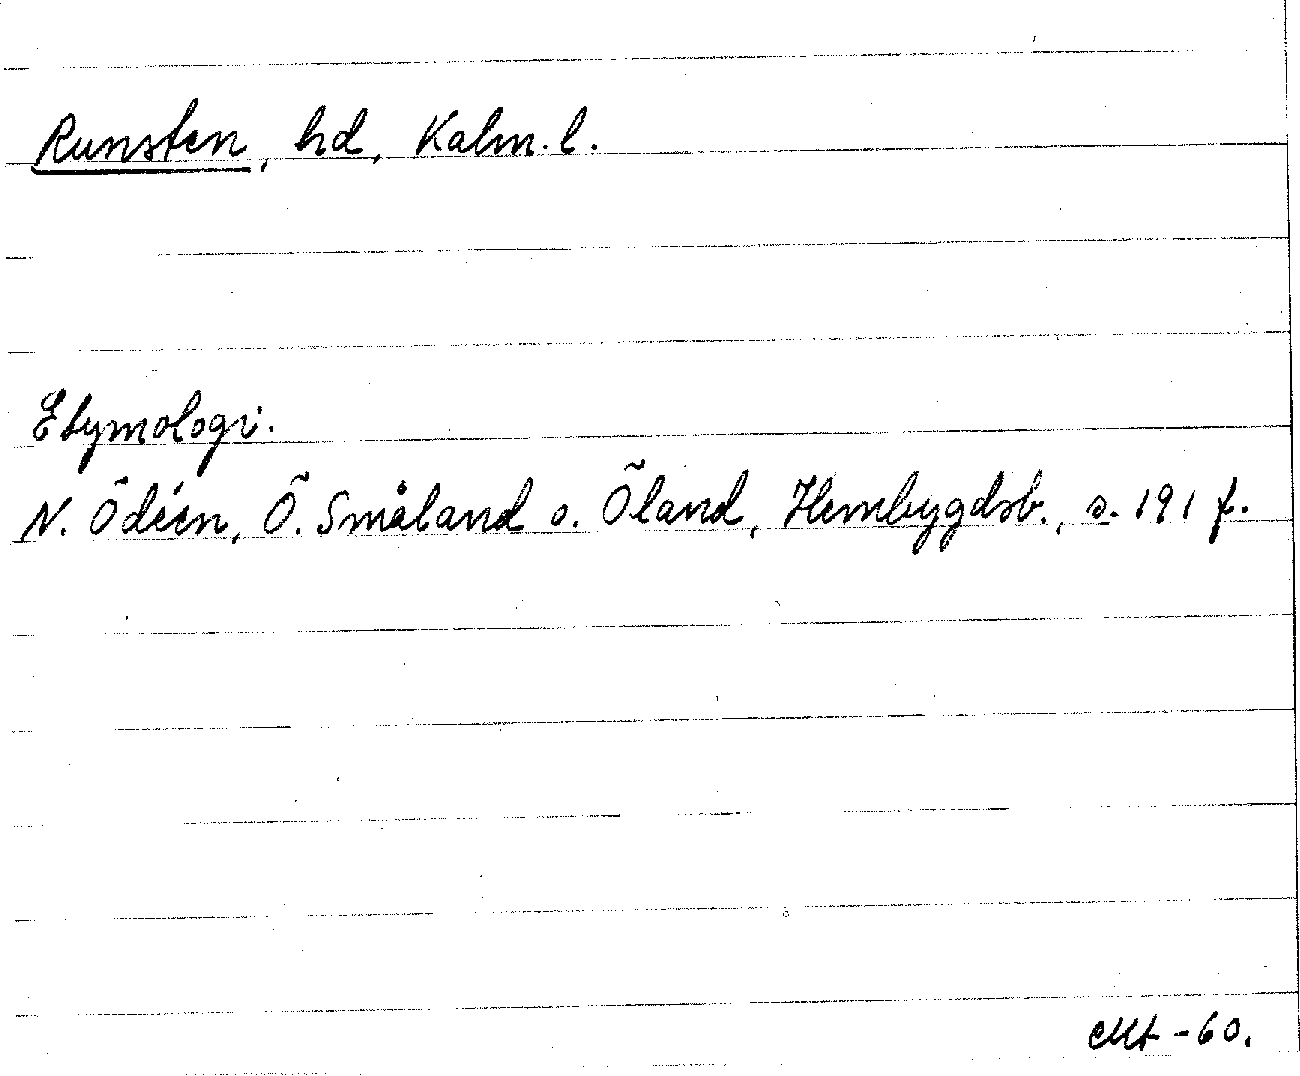 Runsten, hd, Kalm. l.
Etymologi.
N. Ödéen, Ö. Småland o. Öland, Hembygdsb., s. 191 f.
-60.